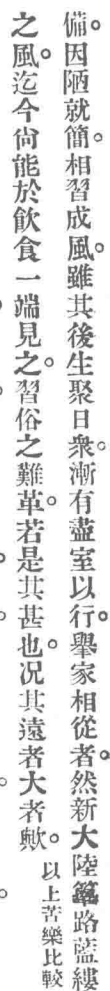 備。因陋就簡。相習成風。雖其後生聚日衆。漸有盡室以行。舉家相從者。然新大陸篳路藍縷
之風。迄今尙能於飲食一端見之。習俗之難革。若是其甚也。况其遠者大者歟。以上苦樂比較